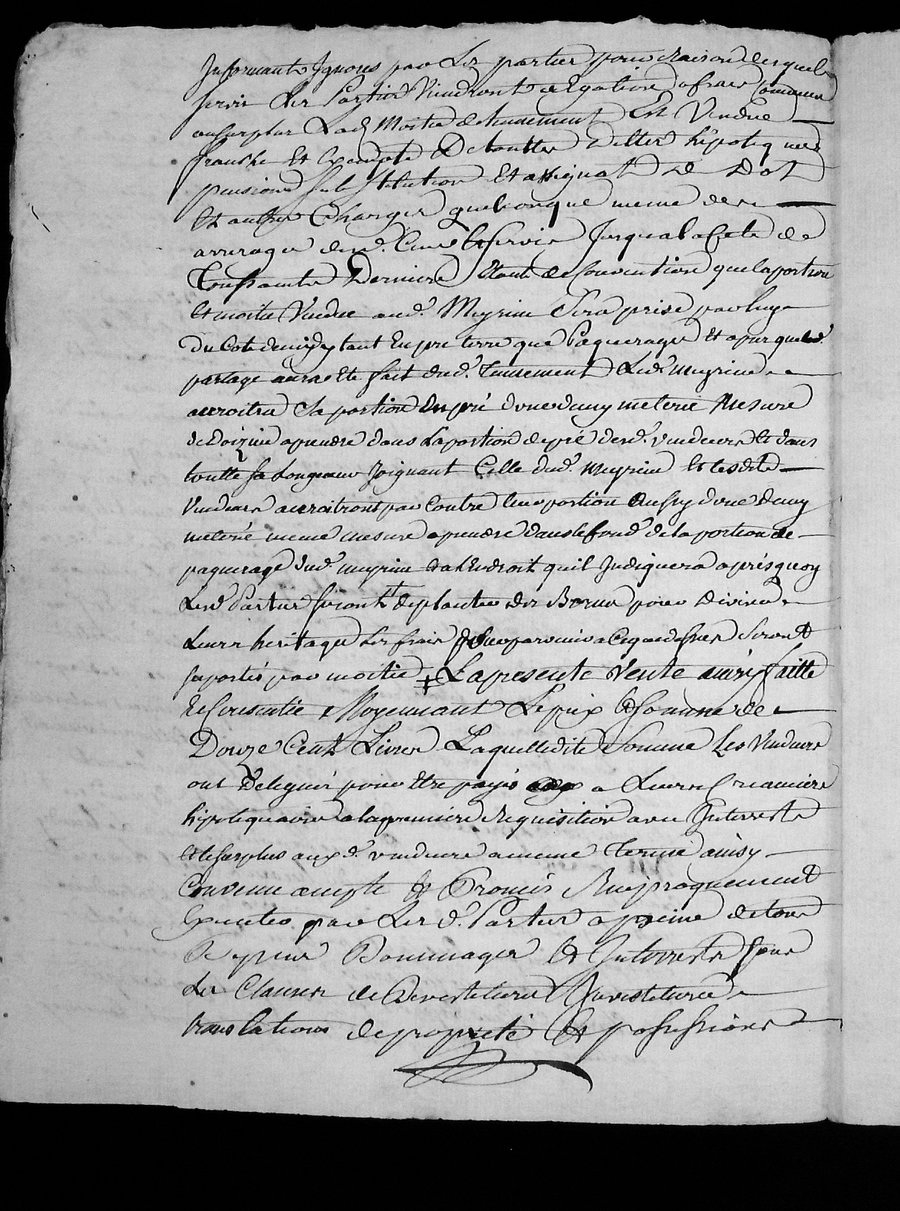 Informants Ignoré par Les partier pour Raison desquels
servis Les Partier Viendront a Egation a frais communs
au surplus Lad. Moitié de tennement Est Vendue
franche Et Exempte De touttes dettes hipoteques
pensions substitution Et assignat De Dot
Et autres Charges quelconque meme des
arrerages desd. Cens et servis Jusqua la fete de
Toussaints Derniere Etant de Convention que la portion
Et moitié Vendue aud. Meyrine Sera prise par luy
du Coté de midy tant En pré terre que Paquerage Et apres que led.
partage aura Eté fait dud. Tennement Led. meyrine
accroitra Sa portion du pré d'une demy meterée Mesure
de a prendre dans La portion de pré desd. Vendeurs Et dans
toutte sa Longueur Joignant Celle dud. Meyrine Et lesdits
Vendeurs accroitront par Contre leur portion Aussy d'une Demy
meterée meme mesure a prendre dans le fond de la portion de
paquerage dud. meyrine Et a L'Endroit quil Indiquera apres quoy
Lesd. Partier feront deplanter des Bornes pour Diviser
Leurs heritages Les frais pour parvenir a Ce que dessus Seront
suportés par moitié ‡ La presente Vente ainsy faitte
Et Consentie Moyennant Le prix Et Somme de
Douze Cent Livres Laquelle ditte Somme Les Vendeurs
ont Delegué pour Etre payés a Leurs Creanciers
hipotequaires a la premiere Requisition avec Interrets
Et le surplus auxd. vendeurs a meme terme ainsy
Convenu accepté & Promis Reciproquement
Executer par Les d. Parties a peine de tous
Depens Dommages & Interrests sous
Les Clauses de Devestiture Investiture
translations de proprieté & possessions